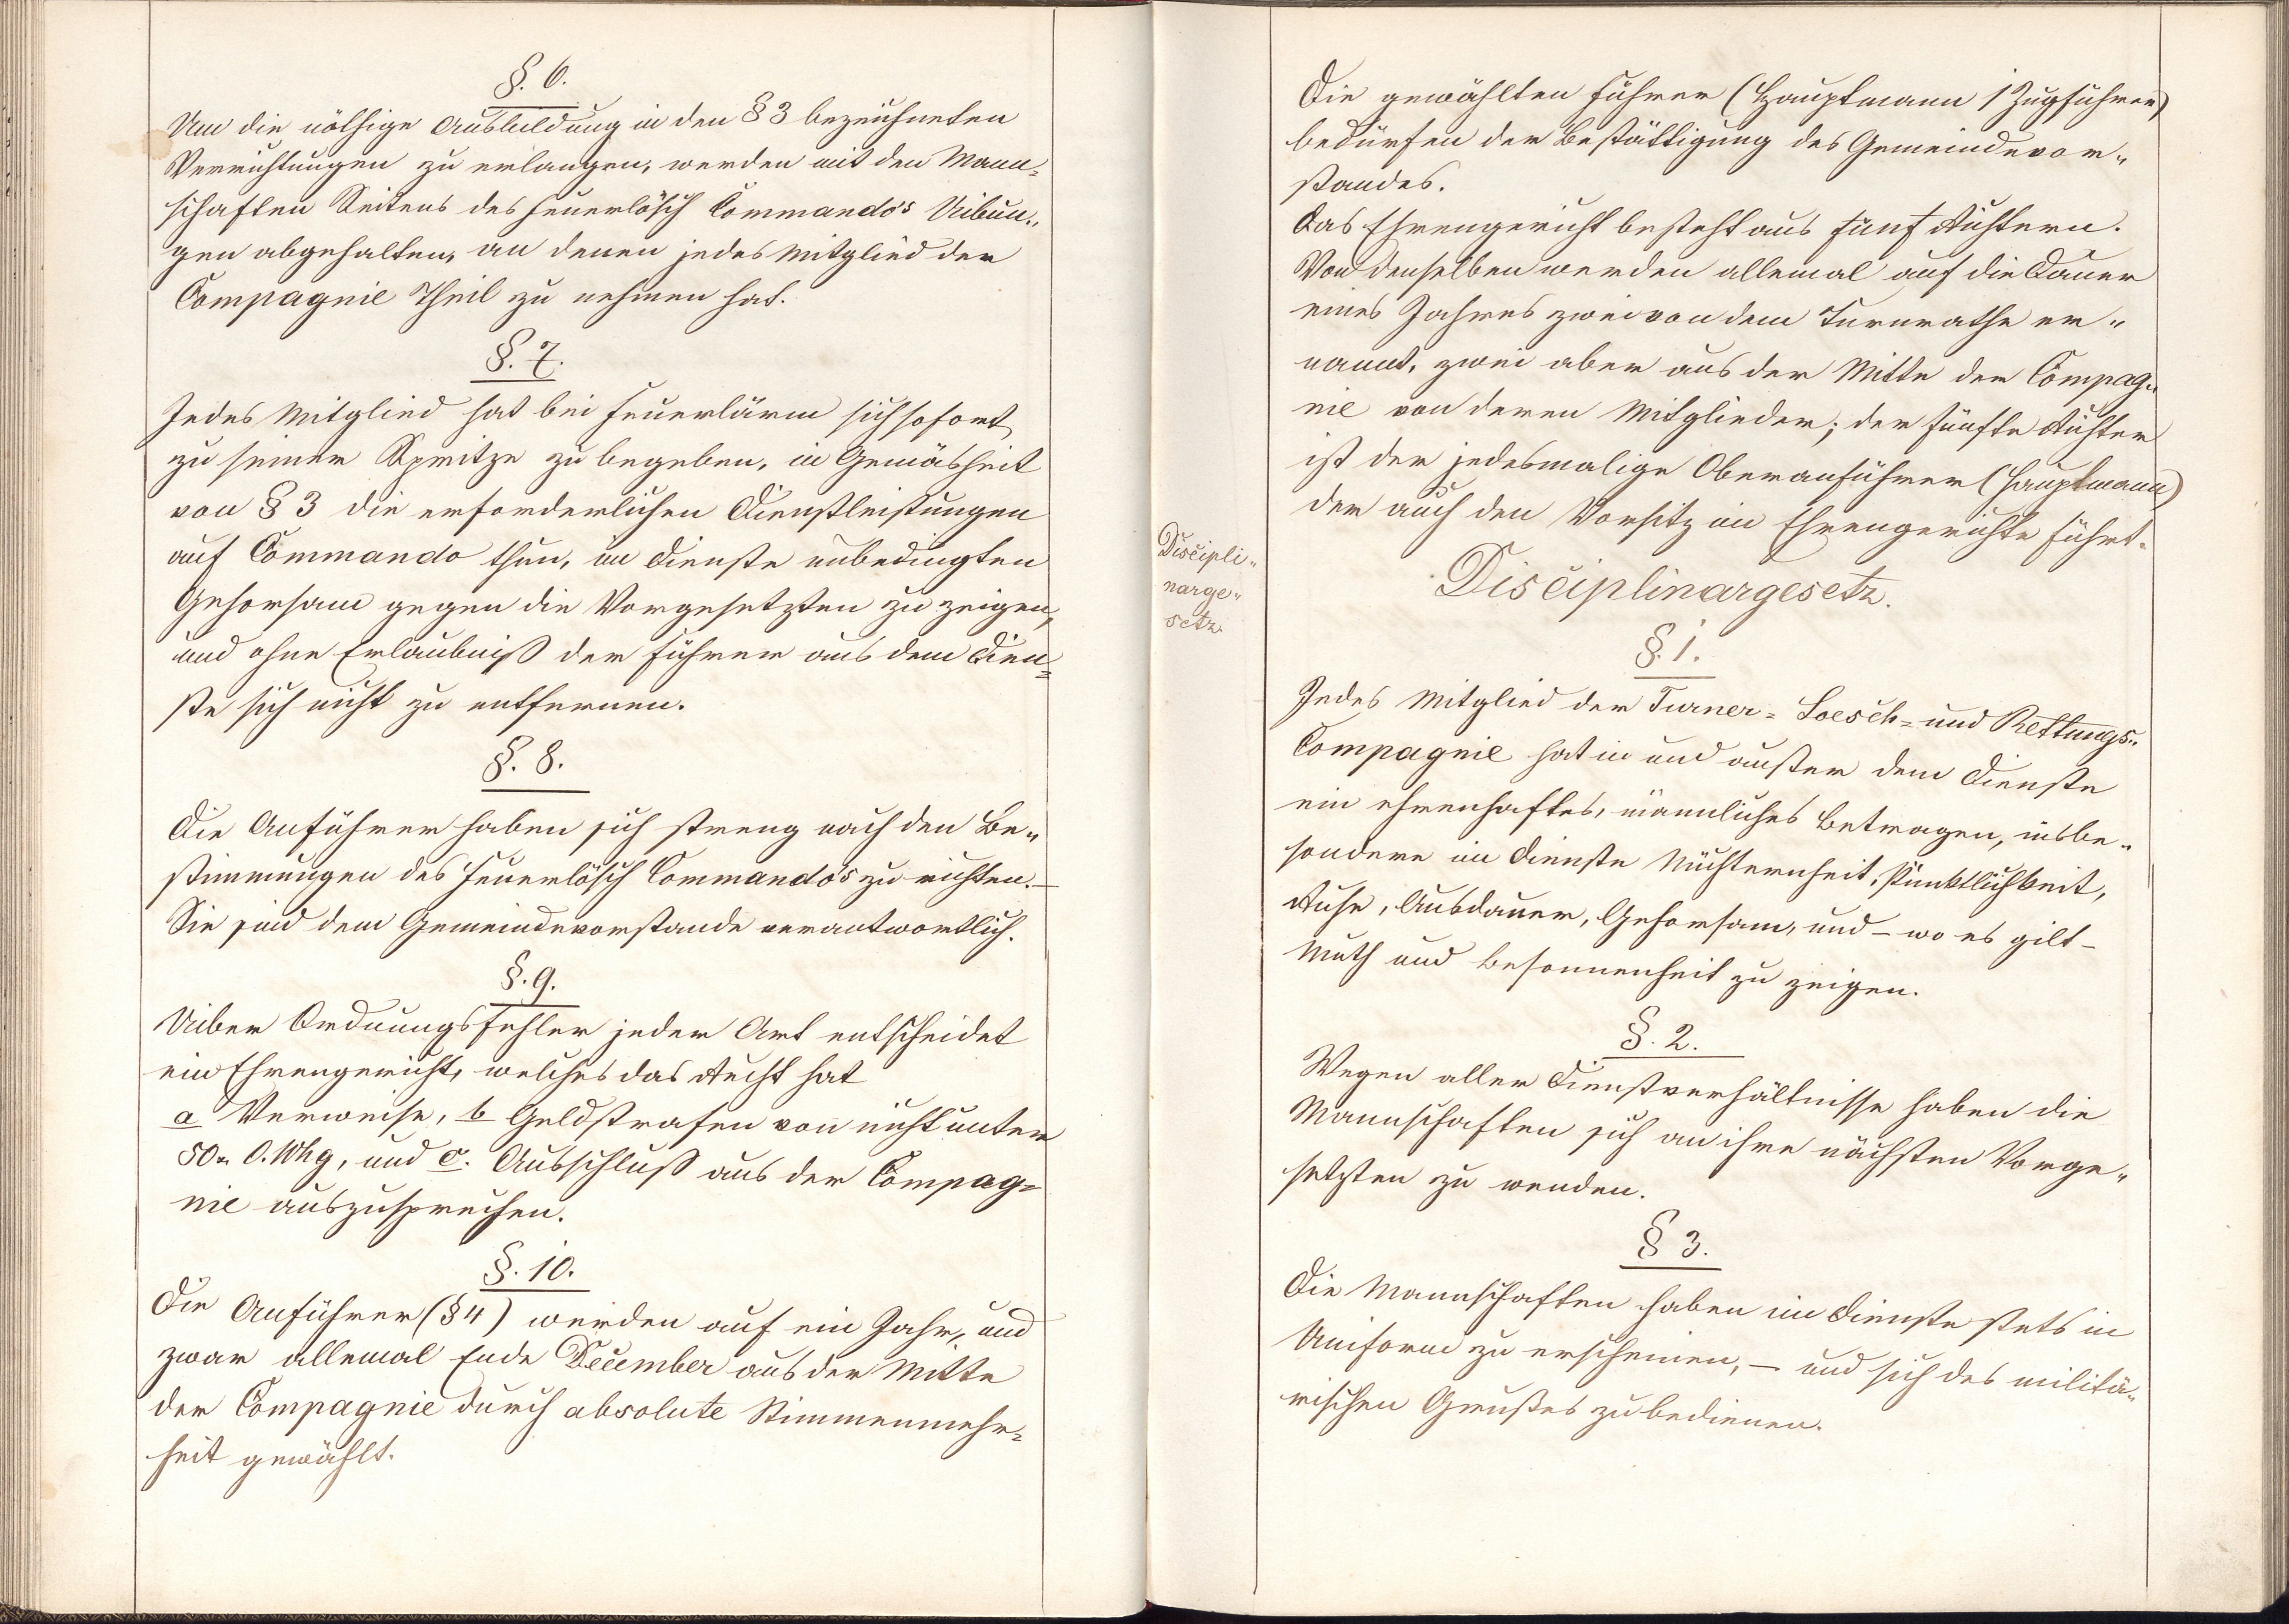 §. 6.
Um die nöthige Ausbildung in den § 3 bezeichneten
Verrichtungen zu erlangen, werden mit den Mann=
schaften Seitens des Feuerlösch Commando's Uibun„
gen abgehalten, an denen jedes Mitglied der
Compagnie Theil zu nehmen hat.
§. 7.
Jedes Mitglied hat bei Feuerlärm sich sofort
zu seiner Spritze zu begeben, in Gemäsheit
von § 3 die erforderlichen Dienstleistungen
auf Commando thun, im Dienste unbedingten
Gehorsam gegen die Vorgesetzten zu zeigen,
und ohne Erlaubniß der Führer aus dem Dien=
ste sich nicht zu entfernen.
§. 8.
Die Anführer haben sich streng nach den Be„
stimmungen des Feuerlösch Commando's zu richten.—
Sie sind dem Gemeindevorstande verantwortlich.
§. 9.
Uiber Ordnungsfehler jeder Art entscheidet
ein Ehrengericht, welches das Recht hat
a Verweise, b Geldstrafen von nicht unter
50 x. O. Whg, und c. Ausschluß aus der Compag=
nie auszusprechen.
§. 10.
Die Anführer (§ 4) werden auf ein Jahr, und
zwar allemal Ende December aus der Mitte
der Compagnie durch absolute Stimmenmehr=
heit gewählt.
Die gewählten Führer (Hauptmann / Zugführer)
bedürfen der Bestättigung des Gemeindevor„
standes.
Das Ehrengericht besteht aus fünf Richtern.
Von denselben werden allemal auf die Dauer
eines Jahres zwei von dem Turnrathe er„
nannt, zwei aber aus der Mitte der Compag„
nie von deren Mitglieder; der fünfte Richter
ist der jedesmalige Oberanführer (Hauptmann)
der auch den Vorsitz im Ehrengerichte führt.
Discipli„
narge„
setz.
Disciplinargesetz.
§. 1.
Jedes Mitglied der Turner= Loesch= und Rettungs„
Compagnie hat in und ausser dem Dienste
ein ehrenhaftes, männliches Betragen, insbe„
sondere im Dienste Nüchternheit, Pünktlichkeit,
Ruhe, Ausdauer, Gehorsam, und – wo es gilt –
Muth und Besonnenheit zu zeigen.
§. 2.
Wegen aller Dienstverhältnisse haben die
Mannschaften sich an ihre nächsten Vorge„
setzten zu wenden.
§ 3.
Die Mannschaften haben im Dienste stets in
Uniform zu erscheinen, – und sich des militä„
rischen Grußes zu bedienen.